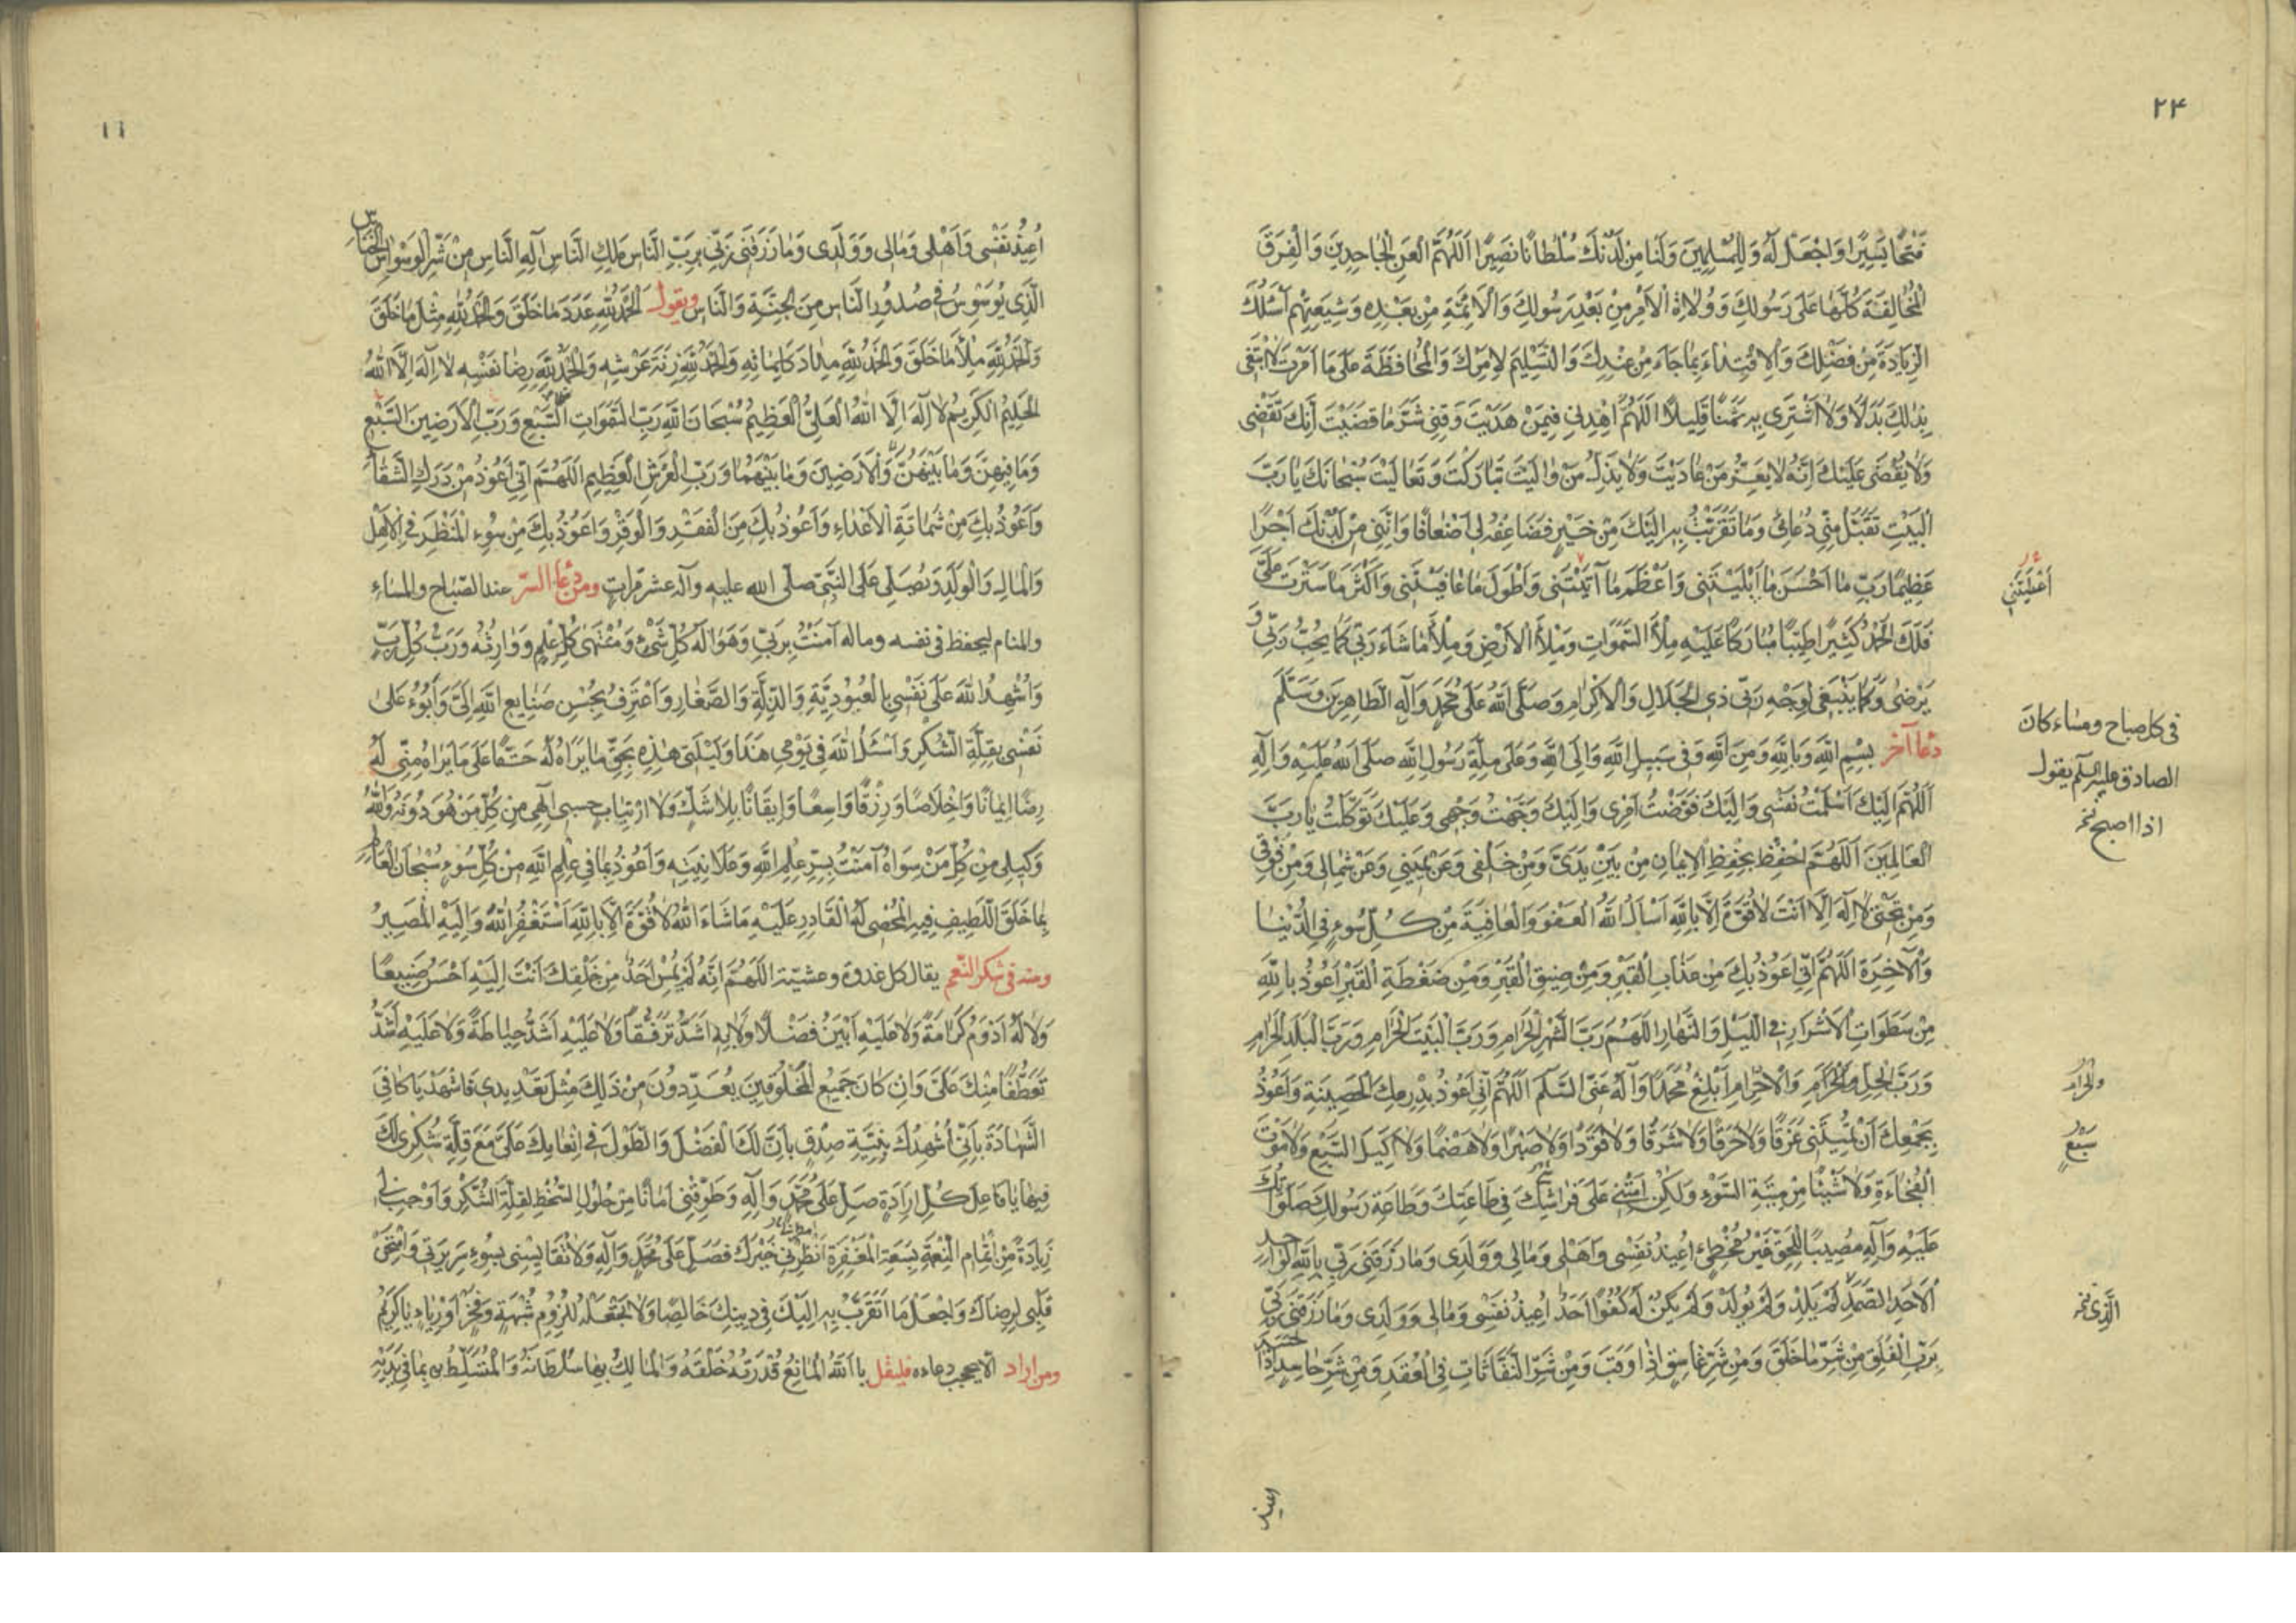 ٢٤
فَتْحًا يَسِيرًا وَاجْعَلْ لَهُ وَلِلْمُسْلِمِينَ وَلَنَا مِنْ لَدُنْكَ سُلْطَانًا نَصِيرًا اَللّٰهُمَّ الْعَنِ الْجَاحِدِينَ وَالْفِرَقَ
الْمُخَالِفَةَ كُلَّهَا عَلَى رَسُولِكَ وَوُلَاةِ الْأَمْرِ مِنْ بَعْدِ رَسُولِكَ وَالْأَئِمَّةِ مِنْ بَعْدِهِ وَشِيعَتِهِمْ أَسْئَلُكَ
الزِّيَادَةَ مِنْ فَضْلِكَ وَالْاِقْتِدَاءَ بِمَا جَاءَ مِنْ عِنْدِكَ وَالتَّسْلِيمَ لِاَمْرِكَ وَالْمُحَافَظَةَ عَلَى مَا اَمَرْتَ لَا اَبْتَغِي
بِذٰلِكَ بَدَلًا وَلَا اَشْتَرِي بِهِ ثَمَنًا قَلِيلًا اَللّٰهُمَّ اهْدِنِي فِيمَنْ هَدَيْتَ وَقِنِي شَرَّ مَا قَضَيْتَ اِنَّكَ تَقْضِي
وَلَا يُقْضَى عَلَيْكَ اِنَّهُ لَا يَعِزُّ مَنْ عَادَيْتَ وَلَا يَذِلُّ مَنْ وَالَيْتَ تَبَارَكْتَ وَتَعَالَيْتَ سُبْحَانَكَ يَا رَبَّ
الْبَيْتِ تَقَبَّلْ مِنِّي دُعَائِي وَمَا تَقَرَّبْتُ بِهِ اِلَيْكَ مِنْ خَيْرٍ فَضَاعِفْهُ لِي اَضْعَافًا وَاٰتِنِي مِنْ لَدُنْكَ اَجْرًا
عَظِيمًا رَبِّ مَا اَحْسَنَ مَا اَبْلَيْتَنِي وَاَعْظَمَ مَا آتَيْتَنِي وَاَطْوَلَ مَا عَافَيْتَنِي وَاَكْثَرَ مَا سَتَرْتَ عَلَيَّ
اَعْطَيْتَنِي
فَلَكَ الْحَمْدُ كَثِيرًا طَيِّبًا مُبَارَكًا عَلَيْهِ مِلْأَ السَّمٰوَاتِ وَمِلْأَ الْاَرْضِ وَمِلْأَ مَا شَاءَ رَبِّي كَمَا يُحِبُّ رَبِّي وَ
يَرْضَى وَكَمَا يَنْبَغِي لِوَجْهِ رَبِّي ذِي الْجَلَالِ وَالْاِكْرَامِ وَصَلَّى اللّٰهُ عَلَى مُحَمَّدٍ وَآلِهِ الطَّاهِرِينَ وَسَلَّمَ
دعا آخر بِسْمِ اللّٰهِ وَبِاللّٰهِ وَمِنَ اللّٰهِ وَفِي سَبِيلِ اللّٰهِ وَاِلَى اللّٰهِ وَعَلَى مِلَّةِ رَسُولِ اللّٰهِ صَلَّى اللّٰهُ عَلَيْهِ وَآلِهِ
في كل صباح ومساء كان
الصادق عليه السلم يقول
اذا اصبح نخ
اَللّٰهُمَّ اِلَيْكَ اَسْلَمْتُ نَفْسِي وَاِلَيْكَ فَوَّضْتُ اَمْرِي وَاِلَيْكَ وَجَّهْتُ وَجْهِي وَعَلَيْكَ تَوَكَّلْتُ يَا رَبَّ
الْعَالَمِينَ اَللّٰهُمَّ احْفَظْنِي بِحِفْظِ الْاِيمَانِ مِنْ بَيْنِ يَدَيَّ وَمِنْ خَلْفِي وَعَنْ يَمِينِي وَعَنْ شِمَالِي وَمِنْ فَوْقِي
وَمِنْ تَحْتِي لَا اِلٰهَ اِلَّا اَنْتَ لَا قُوَّةَ اِلَّا بِاللّٰهِ اَسْأَلُ اللّٰهَ الْعَفْوَ وَالْعَافِيَةَ مِنْ كُلِّ سُوءٍ فِي الدُّنْيَا
وَالْآخِرَةِ اَللّٰهُمَّ اِنِّي اَعُوذُ بِكَ مِنْ عَذَابِ الْقَبْرِ وَمِنْ ضِيقِ الْقَبْرِ وَمِنْ ضَغْطَةِ الْقَبْرِ اَعُوذُ بِاللّٰهِ
مِنْ سَطَوَاتِ الْاَشْرَارِ فِي اللَّيْلِ وَالنَّهَارِ اَللّٰهُمَّ رَبَّ الشَّهْرِ الْحَرَامِ وَرَبَّ الْبَيْتِ الْحَرَامِ وَرَبَّ الْبَلَدِ الْحَرَامِ
وَرَبَّ الْحِلِّ وَالْحَرَامِ وَالْاِحْرَامِ اَبْلِغْ مُحَمَّدًا وَآلَهُ عَنِّي السَّلَمَ اَللّٰهُمَّ اِنِّي اَعُوذُ بِدِرْعِكَ الْحَصِينَةِ وَاَعُوذُ
والحرام
بِجَمْعِكَ اَنْ تُمِيتَنِي غَرَقًا وَلَا حَرَقًا وَلَا شَرَقًا وَلَا قَوَدًا وَلَا صَبْرًا وَلَا هَضْمًا وَلَا اَكِيلَ السَّبُعِ وَلَا مَوْتَ
سَبُعٍ
الْفُجَاءَةِ وَلَا شَيْئًا مِنْ مِيتَةِ السَّوْءِ وَلٰكِنْ اَمِتْنِي عَلَى فِرَاشِي فِي طَاعَتِكَ وَطَاعَةِ رَسُولِكَ صَلَوَاتُكَ
عَلَيْهِ وَآلِهِ مُصِيبًا لِلْحَقِّ غَيْرَ مُخْطِئٍ اُعِيذُ نَفْسِي وَاَهْلِي وَمَالِي وَوَلَدِي وَمَا رَزَقَنِي رَبِّي بِاللّٰهِ الْوَاحِدِ
الْاَحَدِ الصَّمَدِ لَمْ يَلِدْ وَلَمْ يُولَدْ وَلَمْ يَكُنْ لَهُ كُفُوًا اَحَدٌ اُعِيذُ نَفْسِي وَمَالِي وَوَلَدِي وَمَا رَزَقَنِي رَبِّي
الَّذِي نخ
بِرَبِّ الْفَلَقِ مِنْ شَرِّ مَا خَلَقَ وَمِنْ شَرِّ غَاسِقٍ اِذَا وَقَبَ وَمِنْ شَرِّ النَّفَّاثَاتِ فِي الْعُقَدِ وَمِنْ شَرِّ حَاسِدٍ اِذَا حَسَدَ
اعيذ
١١
اُعِيذُ نَفْسِي وَاَهْلِي وَمَالِي وَوَلَدِي وَمَا رَزَقَنِي رَبِّي بِرَبِّ النَّاسِ مَلِكِ النَّاسِ اِلٰهِ النَّاسِ مِنْ شَرِّ الْوَسْوَاسِ الْخَنَّاسِ
الَّذِي يُوَسْوِسُ فِي صُدُورِ النَّاسِ مِنَ الْجِنَّةِ وَالنَّاسِ ويقول اَلْحَمْدُ لِلّٰهِ عَدَدَ مَا خَلَقَ وَالْحَمْدُ لِلّٰهِ مِثْلَ مَا خَلَقَ
وَالْحَمْدُ لِلّٰهِ مِلْأَ مَا خَلَقَ وَالْحَمْدُ لِلّٰهِ مِدَادَ كَلِمَاتِهِ وَالْحَمْدُ لِلّٰهِ زِنَةَ عَرْشِهِ وَالْحَمْدُ لِلّٰهِ رِضَا نَفْسِهِ لَا اِلٰهَ اِلَّا اللّٰهُ
الْحَلِيمُ الْكَرِيمُ لَا اِلٰهَ اِلَّا اللّٰهُ الْعَلِيُّ الْعَظِيمُ سُبْحَانَ اللّٰهِ رَبِّ السَّمَوَاتِ السَّبْعِ وَرَبِّ الْاَرَضِينَ السَّبْعِ
وَمَا فِيهِنَّ وَمَا بَيْنَهُنَّ وَالْاَرَضِينَ وَمَا بَيْنَهُمَا وَرَبِّ الْعَرْشِ الْعَظِيمِ اَللّٰهُمَّ اِنِّي اَعُوذُ مِنْ دَرَكِ الشَّقَاءِ
وَاَعُوذُ بِكَ مِنْ شَمَاتَةِ الْاَعْدَاءِ وَاَعُوذُ بِكَ مِنَ الْفَقْرِ وَالْوَقْرِ وَاَعُوذُ بِكَ مِنْ سُوءِ الْمَنْظَرِ فِي الْاَهْلِ
وَالْمَالِ وَالْوَلَدِ وَيُصَلِّي عَلَى النَّبِيِّ صلى الله عليه وآله عشر مرات ومن دعاء السر عند الصباح والمساء
والمنام ليحفظ في نفسه وماله آمَنْتُ بِرَبِّي وَهُوَ اِلٰهُ كُلِّ شَيْءٍ وَمُنْتَهَى كُلِّ عِلْمٍ وَوَارِثُهُ وَرَبُّ كُلِّ رَبٍّ
وَاُشْهِدُ اللّٰهَ عَلَى نَفْسِي بِالْعُبُودِيَّةِ وَالذِّلَّةِ وَالصَّغَارِ وَاَعْتَرِفُ بِحُسْنِ صَنَايِعِ اللّٰهِ اِلَيَّ وَاَبُوءُ عَلَى
نَفْسِي بِقِلَّةِ الشُّكْرِ وَاَسْئَلُ اللّٰهَ فِي يَوْمِي هَذَا وَلَيْلَتِي هٰذِهِ بِحَقِّ مَا يَرَاهُ لَهُ حَقًّا عَلَى مَا يَرَاهُ مِنِّي لَهُ
رِضًا اِيمَانًا وَاِخْلَاصًا وَرِزْقًا وَاسِعًا وَاِيقَانًا بِلَا شَكٍّ وَلَا ارْتِيَابٍ حسبي اِلٰهِي مِنْ كُلِّ مَنْ هُوَ دُونَهُ وَاللّٰهُ
وَكِيلِي مِنْ كُلِّ مَنْ سِوَاهُ آمَنْتُ بِسِرِّ عِلْمِ اللّٰهِ وَعَلَانِيَتِهِ وَاَعُوذُ بِمَا فِي عِلْمِ اللّٰهِ مِنْ كُلِّ سُوءٍ سُبْحَانَ الْعَالِمِ
بِمَا خَلَقَ اللَّطِيفِ فِيهِ الْمُحْصِي لَهُ الْقَادِرِ عَلَيْهِ مَا شَاءَ اللّٰهُ لَا قُوَّةَ اِلَّا بِاللّٰهِ اَسْتَغْفِرُ اللّٰهَ وَاِلَيْهِ الْمَصِيرُ
ومنه في شكر النعم يقال كل غدوة وعشية اَللّٰهُمَّ اِنَّهُ لَمْ يُمْسِ اَحَدٌ مِنْ خَلْقِكَ اَنْتَ اِلَيْهِ اَحْسَنُ صَنِيعًا
وَلَا لَهُ اَدْوَمُ كَرَامَةً وَلَا عَلَيْهِ اَبْيَنُ فَضْلًا وَلَا بِهِ اَشَدُّ تَرَفُّقًا وَلَا عَلَيْهِ اَشَدُّ حِيَاطَةً وَلَا عَلَيْهِ اَشَدُّ
تَعَطُّفًا مِنْكَ عَلَيَّ وَاِنْ كَانَ جَمِيعُ الْمَخْلُوقِينَ يُعَدِّدُونَ مِنْ ذَلِكَ مِثْلَ تَعْدِيدِي فَاشْهَدْ يَا كَافِيَ
الشَّهَادَةِ بِاَنِّي اُشْهِدُكَ بِنِيَّةِ صِدْقٍ بِاَنَّ لَكَ الْفَضْلَ وَالطَّوْلَ فِي اِنْعَامِكَ عَلَيَّ مَعَ قِلَّةِ شُكْرِي لَكَ
فِيهَا يَا فَاعِلَ كُلِّ اِرَادَةٍ صَلِّ عَلَى مُحَمَّدٍ وَآلِهِ وَطَوِّقْنِي اَمَانًا مِنْ حُلُولِ السُّخْطِ لِقِلَّةِ الشُّكْرِ وَاَوْجِبْ لِي
زِيَادَةً مِنْ اِتْمَامِ النِّعْمَةِ بِسَعَةِ الْمَغْفِرَةِ اَنْظِرْنِي خَيْرَكَ فَصَلِّ عَلَى مُحَمَّدٍ وَآلِهِ وَلَا تُقَايِسْنِي بِسُوءِ سَرِيرَتِي وَامْتَحِنْ
قَلْبِي لِرِضَاكَ وَاجْعَلْ مَا اَتَقَرَّبُ بِهِ اِلَيْكَ فِي دِينِكَ خَالِصًا وَلَا تَجْعَلْهُ لِلُزُومِ شُبْهَةٍ وَفَخْرٍ اَوْ رِيَاءٍ يَا كَرِيمُ
ومن اراد الا يحجب دعاءه فليقل يَا اَللّٰهُ الْمَانِعُ قُدْرَتَهُ خَلْقَهُ وَالْمَالِكُ بِهَا سُلْطَانَهُ وَالْمُتَسَلِّطُ بِمَا فِي يَدَيْهِ